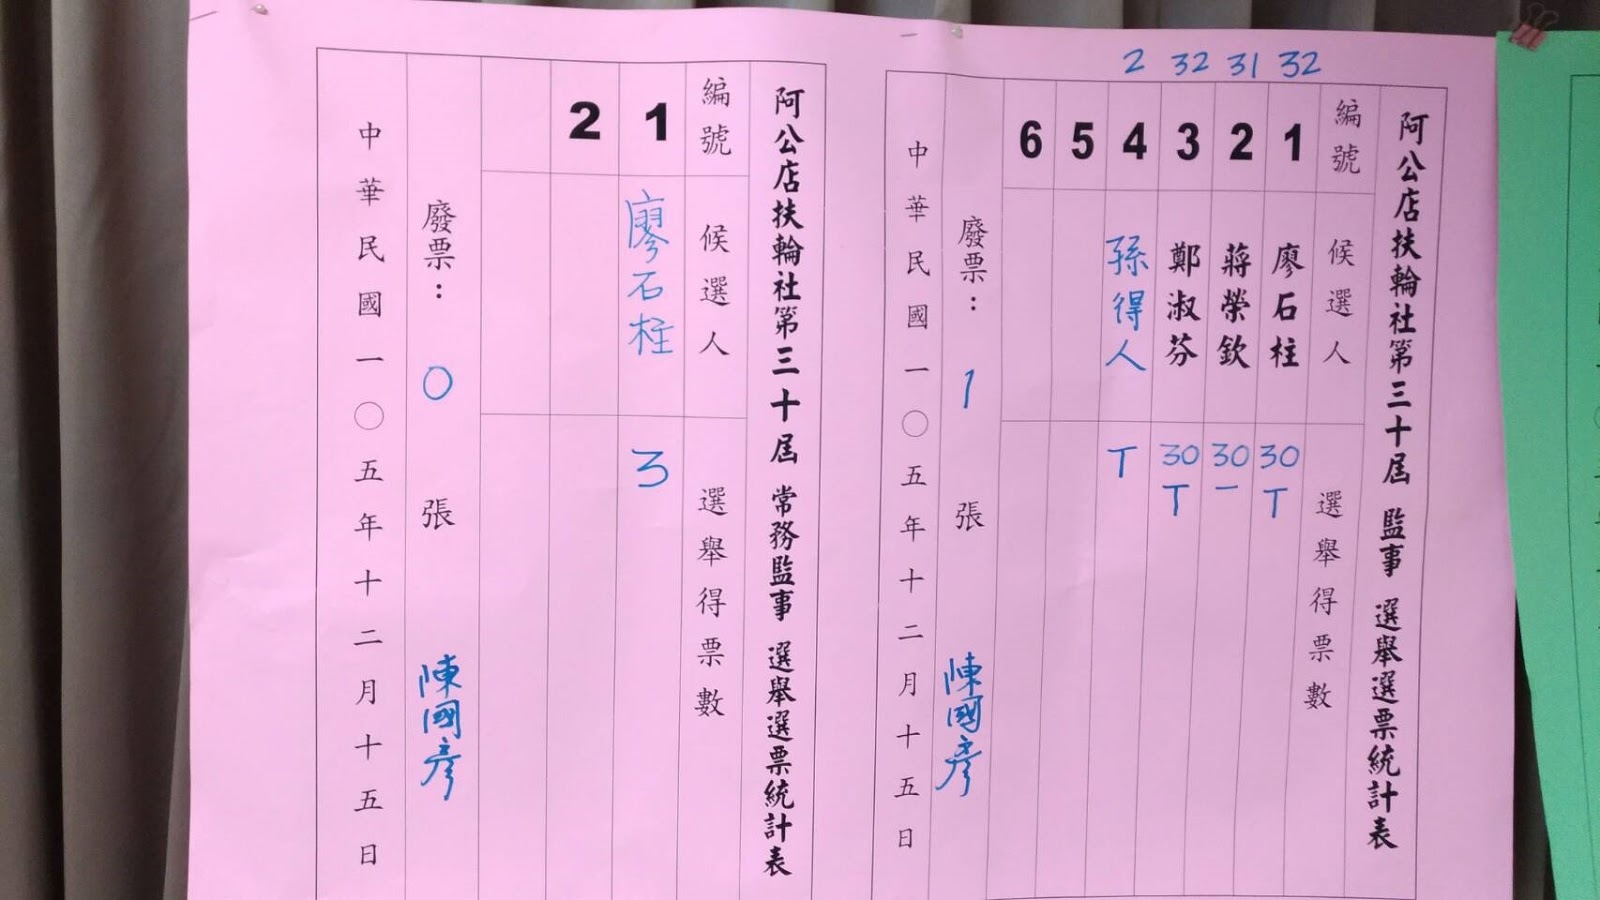 2 32 31 32
阿公店扶輪社第三十屆 監事 選舉選票統計表
編號 候選人 選舉得票數
1 廖石柱 30 T
2 蔣榮欽 30 一
3 鄭淑芬 30 T
4 孫得人 T
5
6
廢票： 1 張 陳國彥
中華民國一〇五年十二月十五日
阿公店扶輪社第三十屆 常務監事 選舉選票統計表
編號 候選人 選舉得票數
1 廖石柱 3
2
廢票： 0 張 陳國彥
中華民國一〇五年十二月十五日